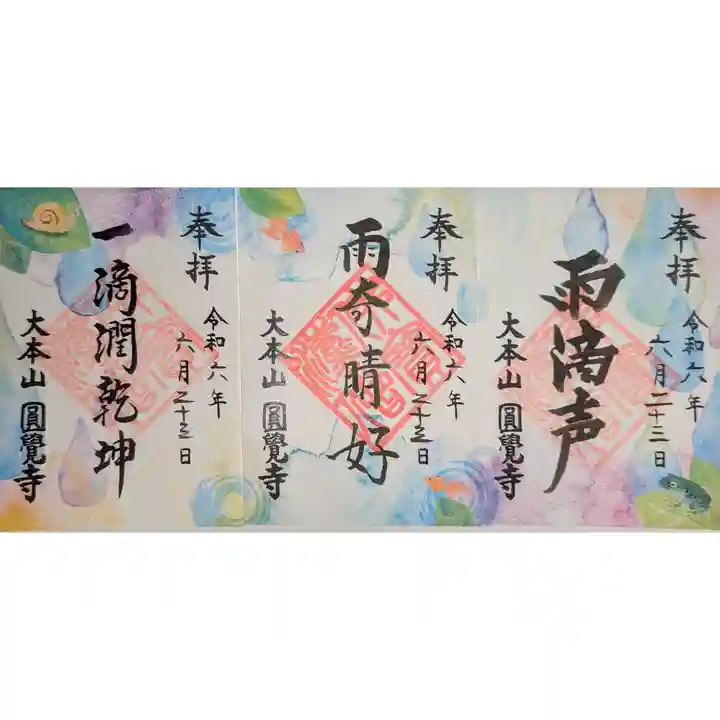 奉拝
雨滴声
令和六年
六月二十三日
大本山 圓覺寺
奉拝
雨奇晴好
令和六年
六月二十三日
大本山 圓覺寺
奉拝
一滴潤乾坤
令和六年
六月二十三日
大本山 圓覺寺